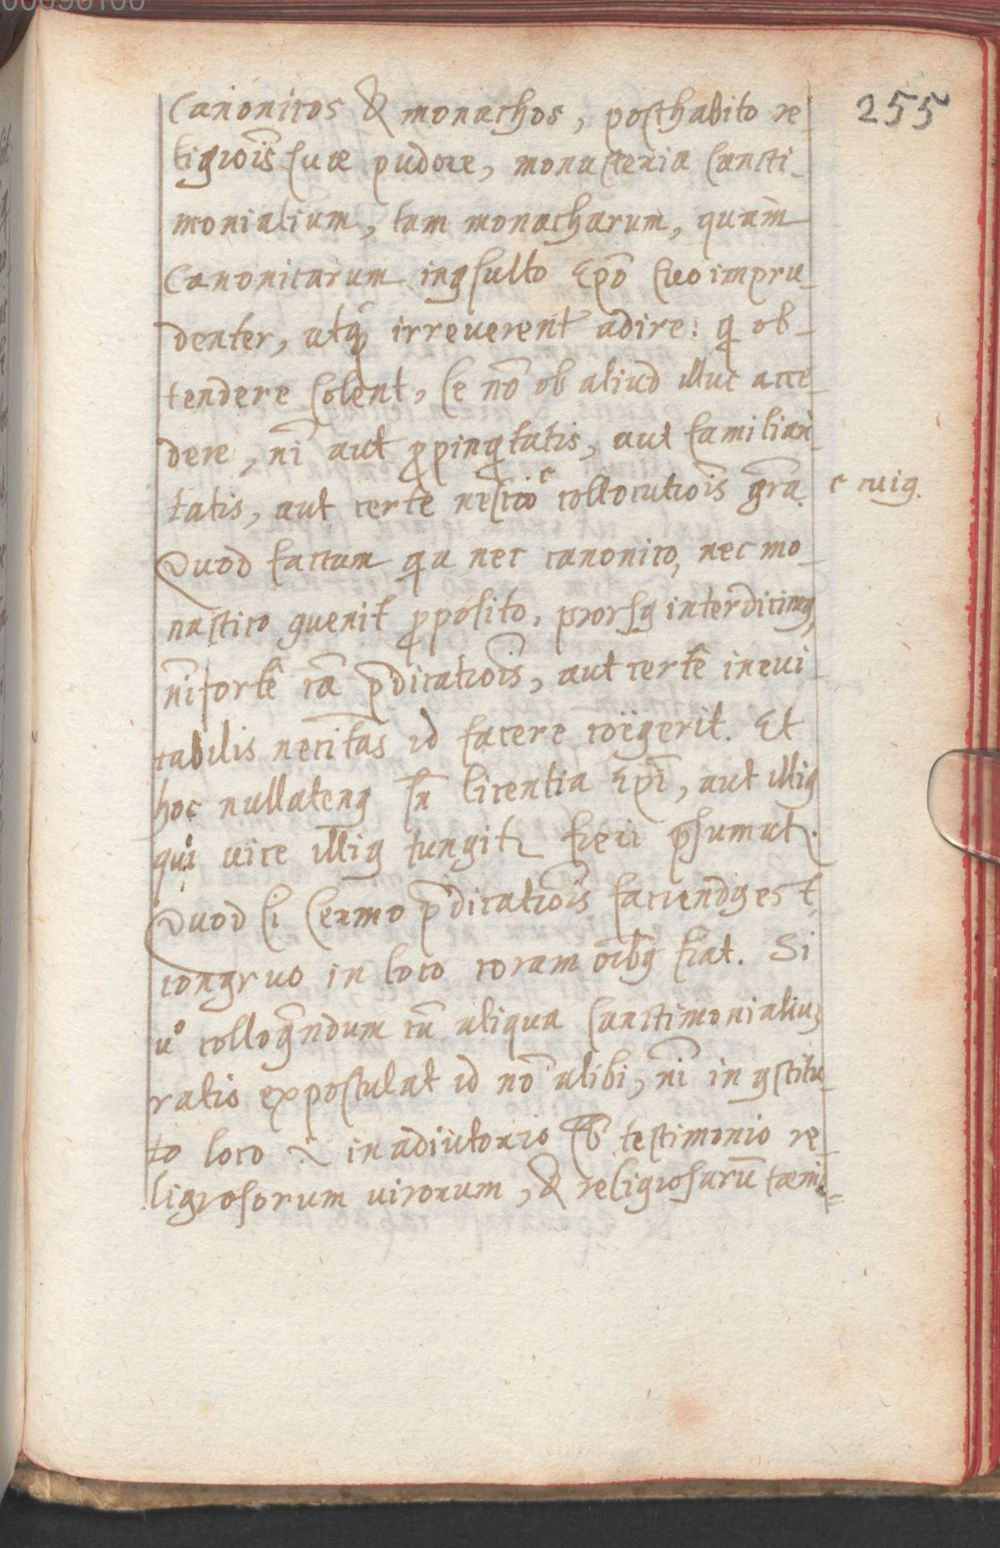 255
Canonicos & monachos, posthabito re
ligioĩs suæ pudore, monasteria sancti-
monialium, tam monacharum, quàm
Canonicarum inꝯsulto Epõ suo impru-
denter, atq̃ irreuerent adire: q̃ ob-
tendere solent, se nõ ob aliud illuc acce-
dere, nĩ aut ꝓpinq̃tatis, aut familiari-
tatis, aut certe nescio c collocutiõis grã.
c cuiꝯ.
Quod factum q̃a nec canonico, nec mo-
nastico ꝯuenit ꝓposito, prorsꝯ interdicimꝯ,
nĩ fortê cã p̃dicatiõis, aut certê ineui-
tabilis necĩtas id facere coëgerit. Et
hoc nullatenꝯ sñ licentia Epĩ, aut illiꝯ
qui uice illiꝯ fungitꝛ fieri p̃sumatꝛ.
Quod si sermo p̃dicatiõis faciendꝯ est
congruo in loco coram oĩbꝯ fiat. Si
uº colloq̃ndum cũ aliqua sanctimonialiũ
ratio expostulat id nõ alibi, nĩ in ꝯstitu-
to loco & in adiutorio sb testimonio re
ligiosorum uirorum, & religiosarũ fœmi=